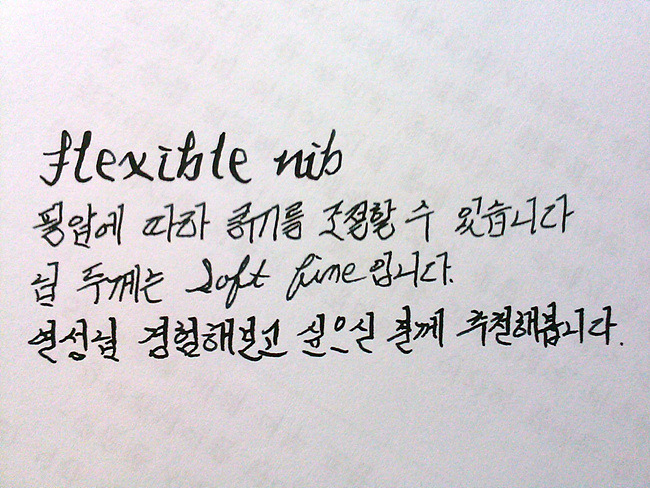 flexible nib
필압에 따라 굵기를 조절할 수 있습니다
닙 두께는 Soft fine입니다.
연성닙 경험해보고 싶으신 분께 추천해봅니다.